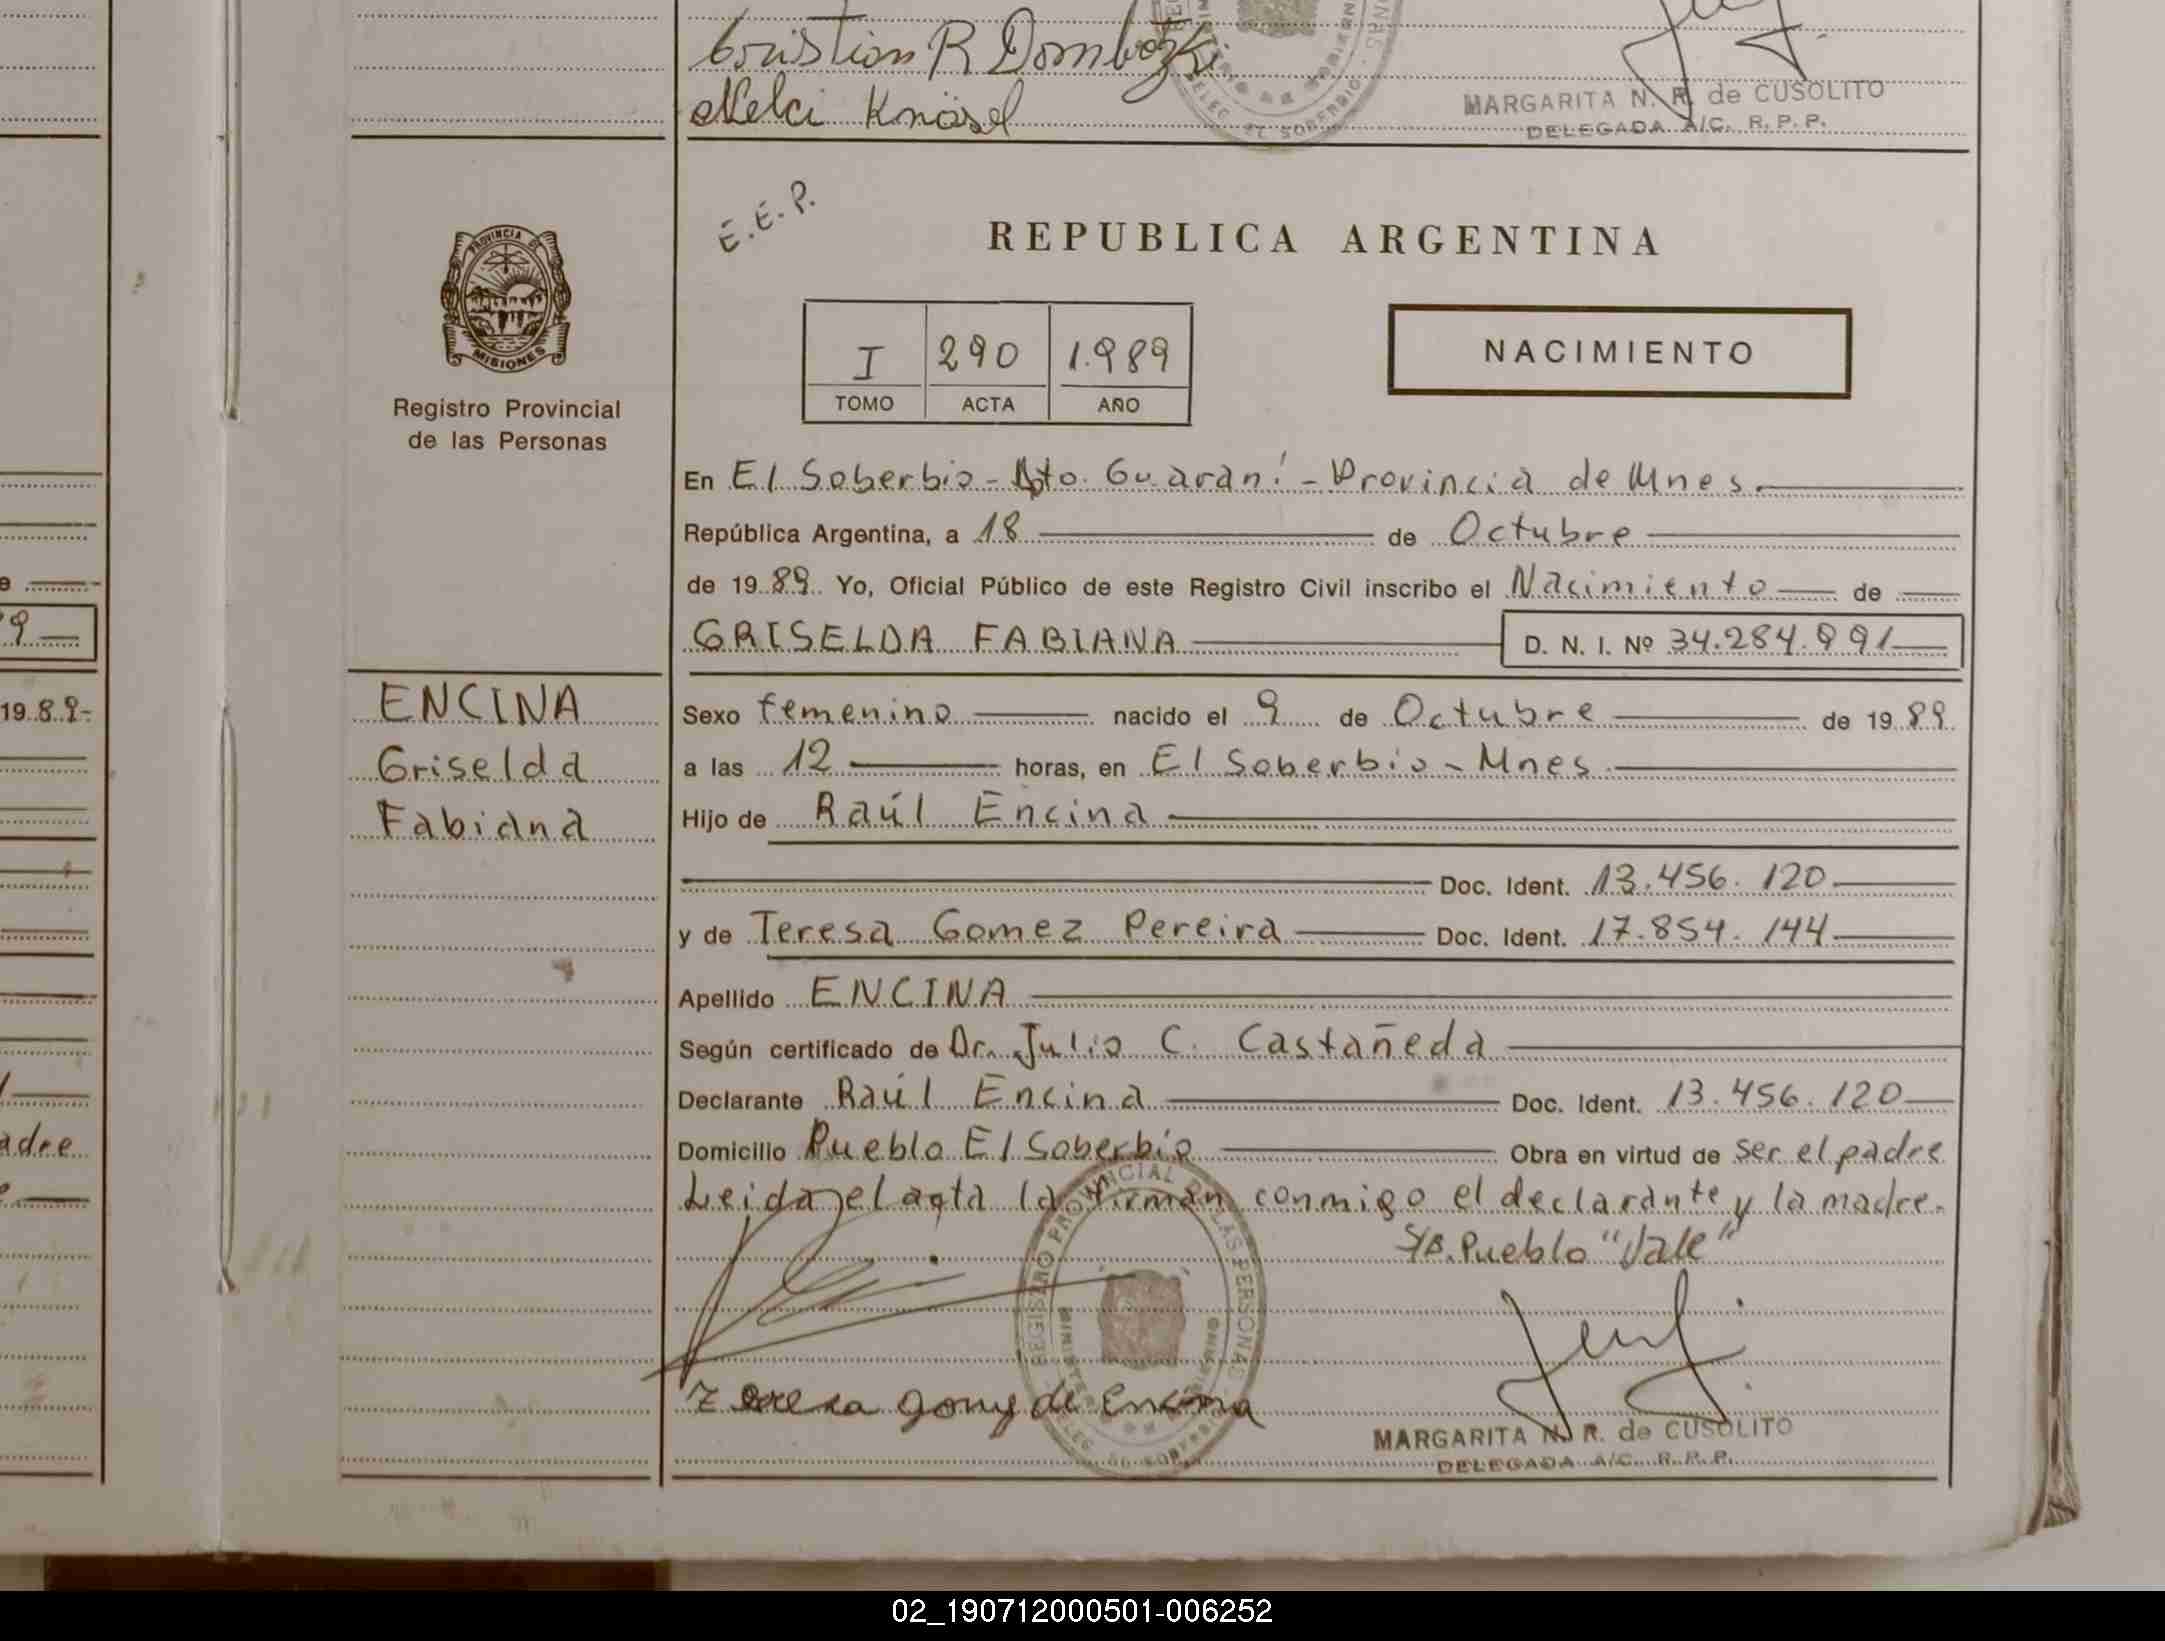 Cristian R Dombotzki
Nelci Knösel
MARGARITA N. R. de CUSOLITO
DELEGADA A/C. R. P. P.
DELEG. EL SOBERBIO
E.E.P.
REPUBLICA ARGENTINA
PROVINCIA DE
MISIONES
I 290 1.989
TOMO ACTA AÑO
NACIMIENTO
Registro Provincial
de las Personas
En El Soberbio - Dto. Guaraní - Provincia de Mnes.
República Argentina, a 18 de Octubre
de 19 89. Yo, Oficial Público de este Registro Civil inscribo el Nacimiento de
GRISELDA FABIANA D. N. I. Nº 34.284.991
ENCINA
Griselda
Fabiana
Sexo femenino nacido el 9 de Octubre de 19 89.
a las 12 horas, en El Soberbio - Mnes.
Hijo de Raúl Encina
Doc. Ident. 13.456.120
y de Teresa Gomez Pereira Doc. Ident. 17.854.144
Apellido ENCINA
Según certificado de Dr. Julio C. Castañeda
Declarante Raúl Encina Doc. Ident. 13.456.120
Domicilio Pueblo El Soberbio Obra en virtud de ser el padre
Leida el acta la firman conmigo el declarante y la madre.
S/B. Pueblo "Vale"
REGISTRO PROVINCIAL DE LAS PERSONAS
DELEG. EL SOBERBIO
Teresa Gomez de Encina
MARGARITA N. R. de CUSOLITO
DELEGADA A/C. R. P. P.
19 8 9-
adre
02_190712000501-006252